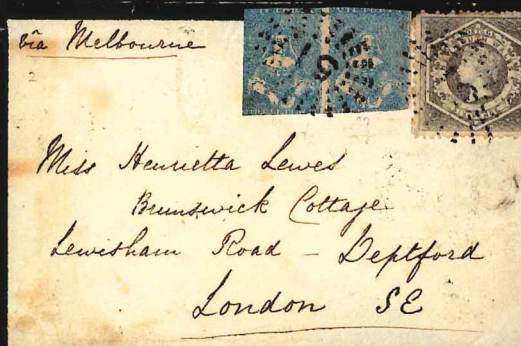 via Melbourne
Miss Henrietta Lewes
Brunswick Cottage
Lewisham Road - Deptford
London SE